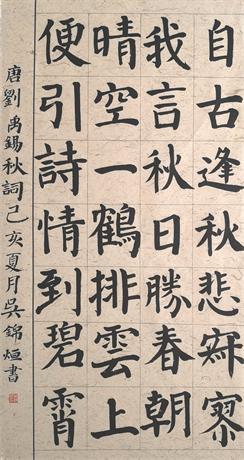 自古逢秋悲寂寥
我言秋日勝春朝
晴空一鶴排雲上
便引詩情到碧霄
唐劉禹錫秋詞己亥夏月吳錦烜書